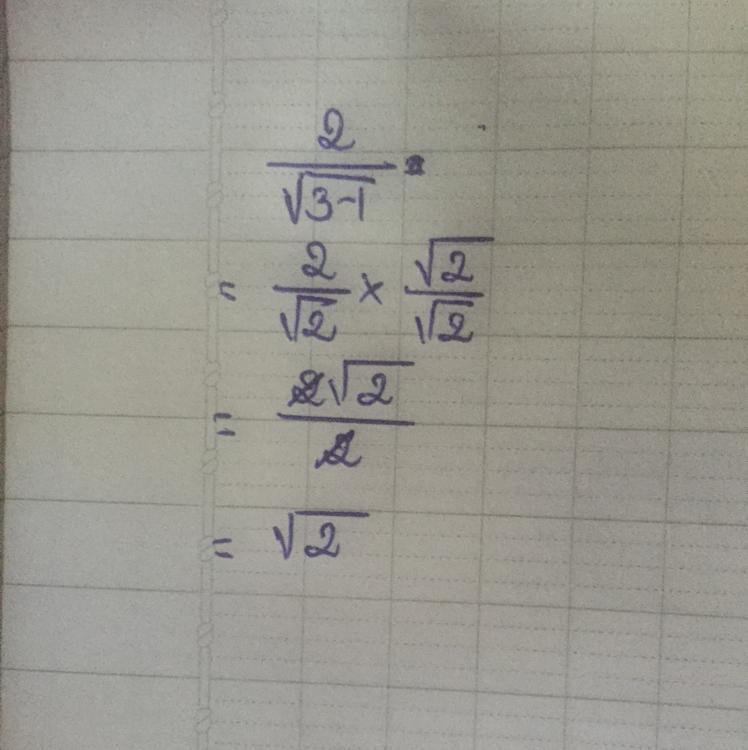 2/√(3-1)
= 2/√2 × √2/√2
= 2√2/2
= √2